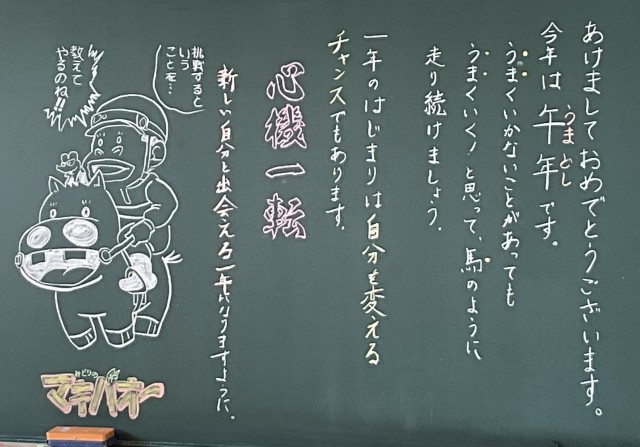 あけましておめでとうございます。
今年は午年です。
うまどし
うまくいかないことがあっても
うまくいく！と思って、馬のように
走り続けましょう。
一年のはじまりは自分を変える
チャンスでもあります。
心機一転
新しい自分と出会える一年になりますように。
挑戦すると
いう
ことを…
教えて
やるのね!!
みどりの
マキバオー